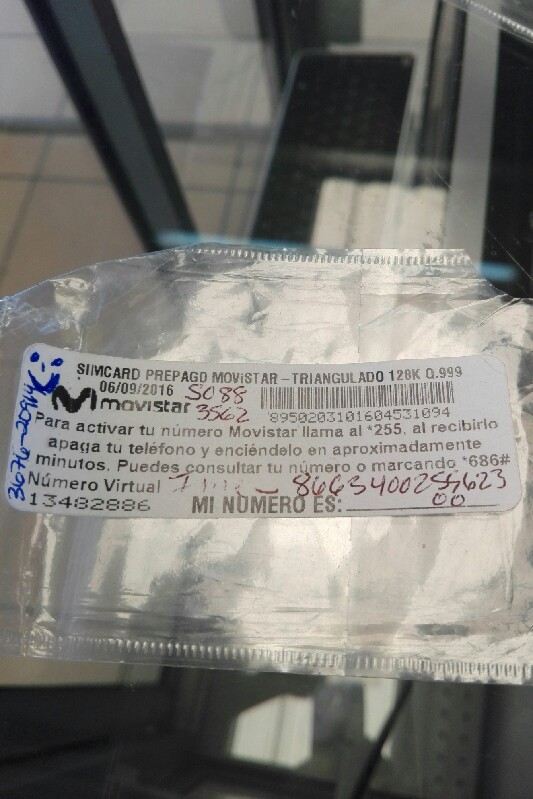 SIMCARD PREPAGO MOViSTAR -TRIANGULADO 128K Q.999
06/09/2016 5088
movistar 3562 8950203101604531094
Para activar tu número Movistar llama al *255, al recibirlo
apaga tu teléfono y enciéndelo en aproximadamente
minutos. Puedes consultar tu número o marcando *686#
Número Virtual
13482886 MI NÚMERO ES: 00